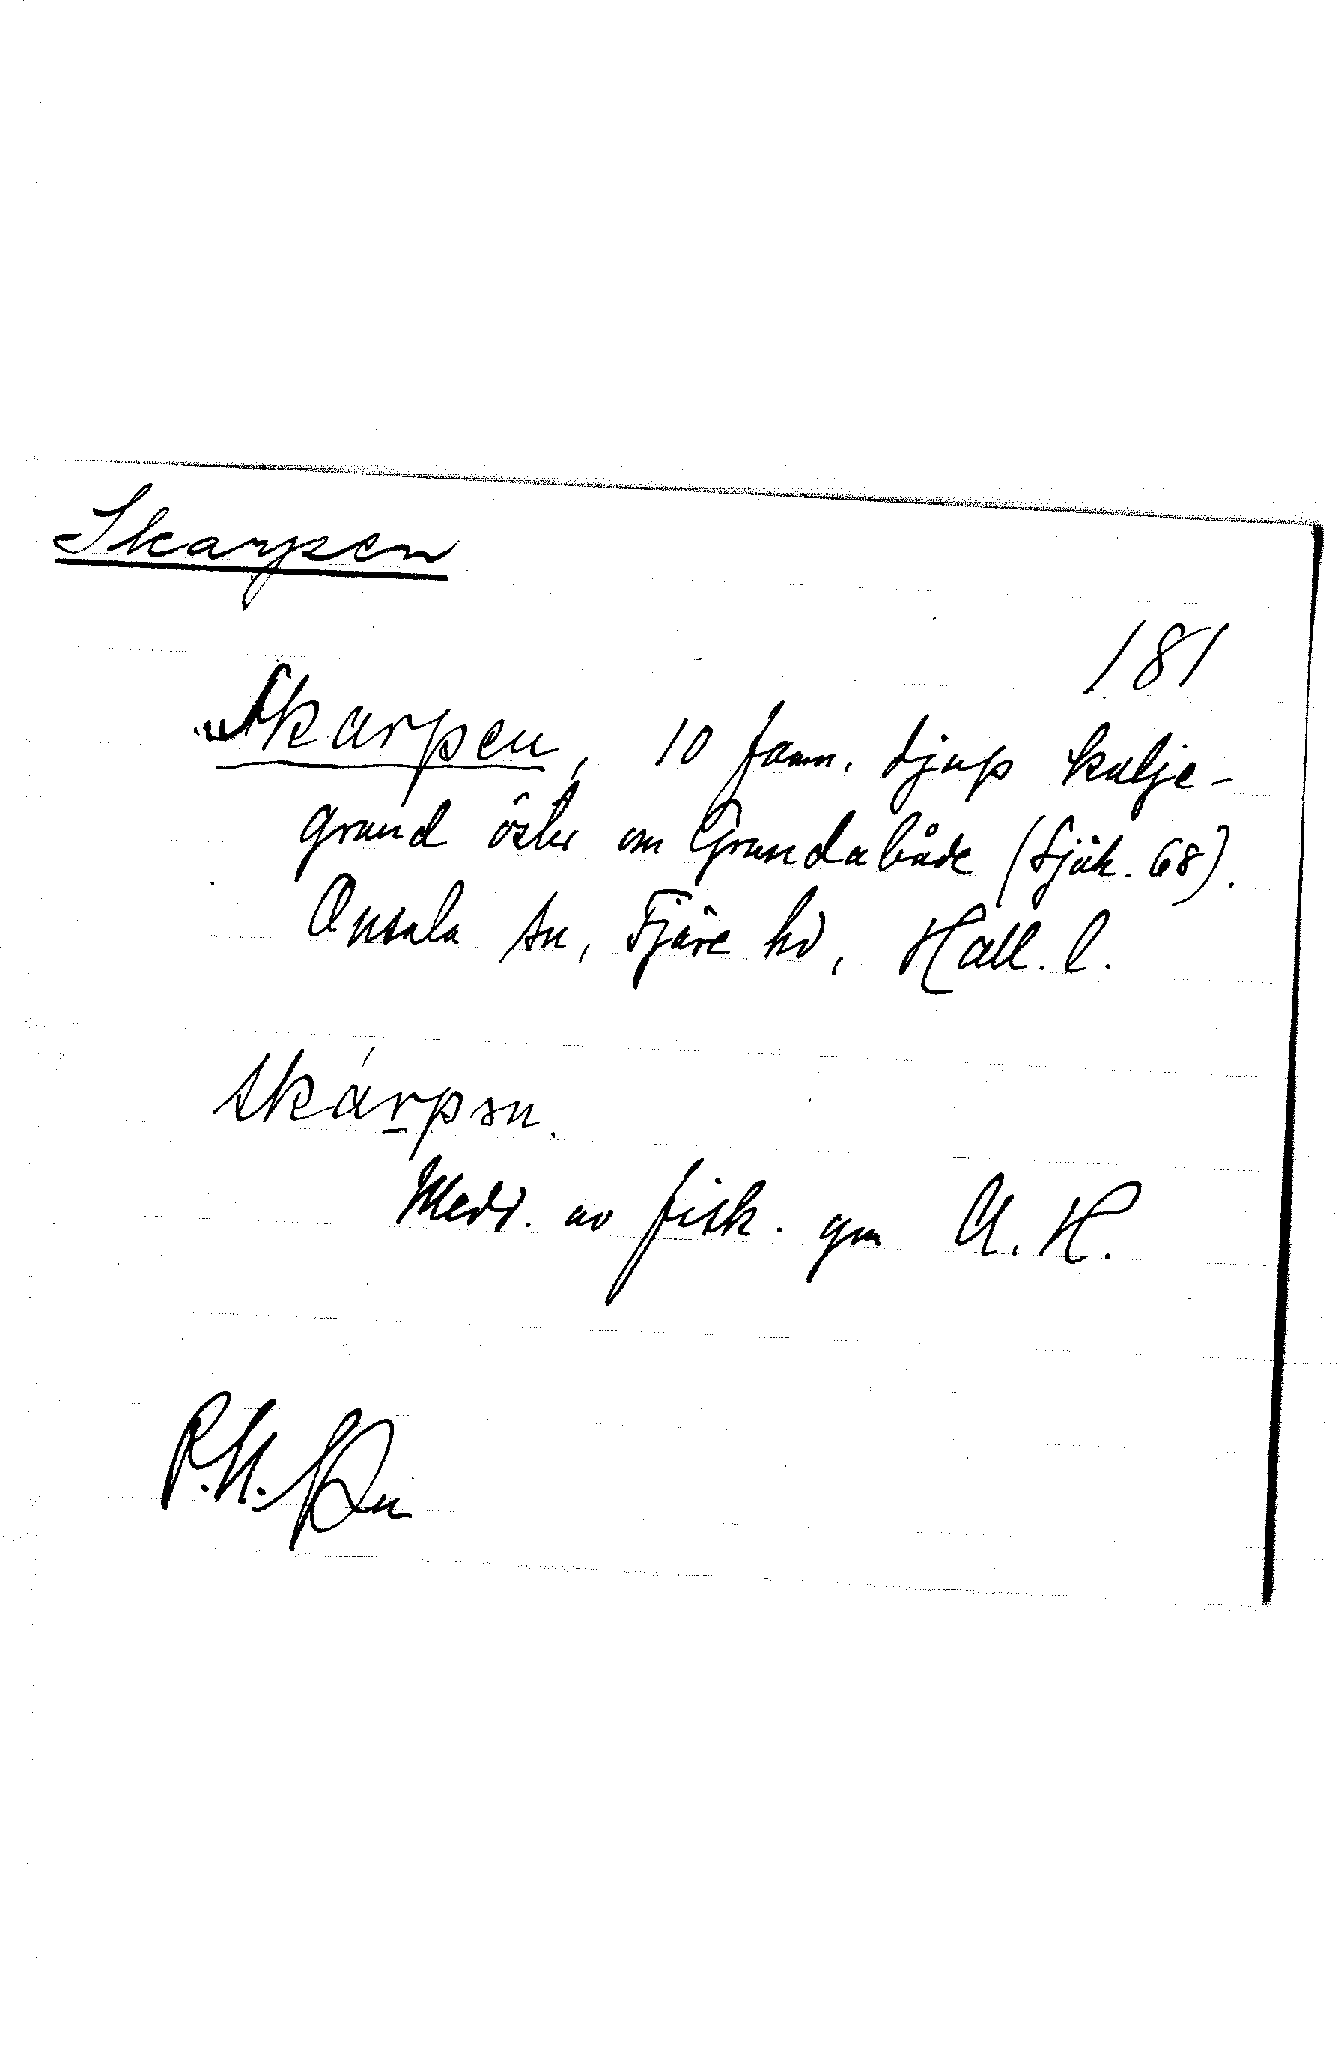 Skarpen
181
Skarpen, 10 famn. djup kolje-
grund öster om Grundabåde (Sjök. 68).
Onsala sn, Fjäre hd, Hall. l.
skárpən.
Medd. av fisk. gm A. H.